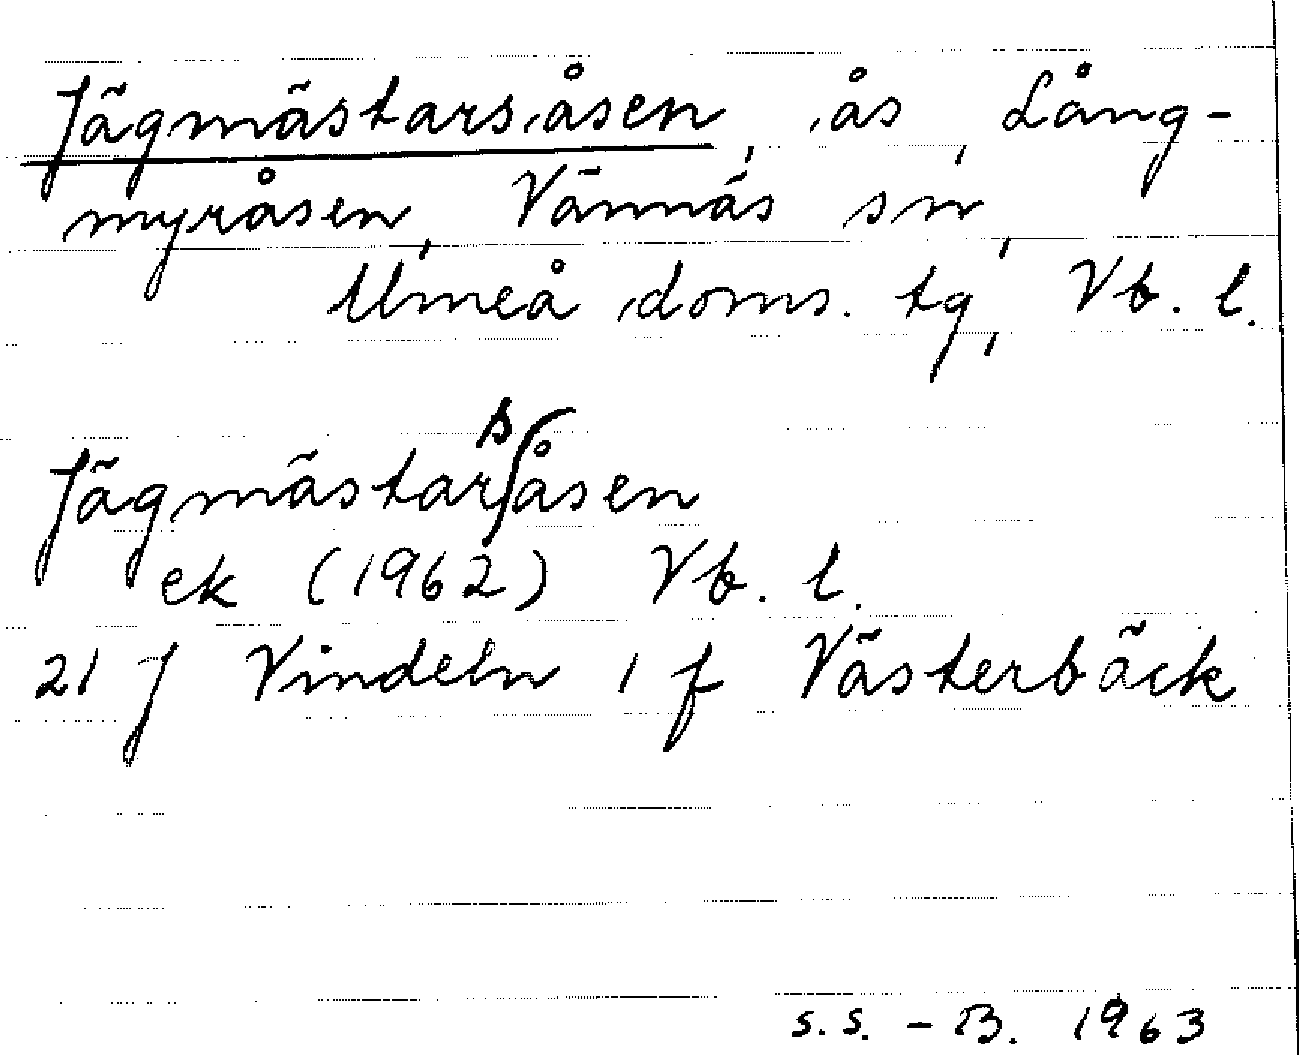 Jägmästarsåsen, ås, Lång-
myråsen, Vännäs sn,
Umeå doms. tg, Vb. l.
Jägmästarsåsen
ek (1962) Vb. l.
21 J Vindeln 1 f Västerbäck
S.S. - B. 1963